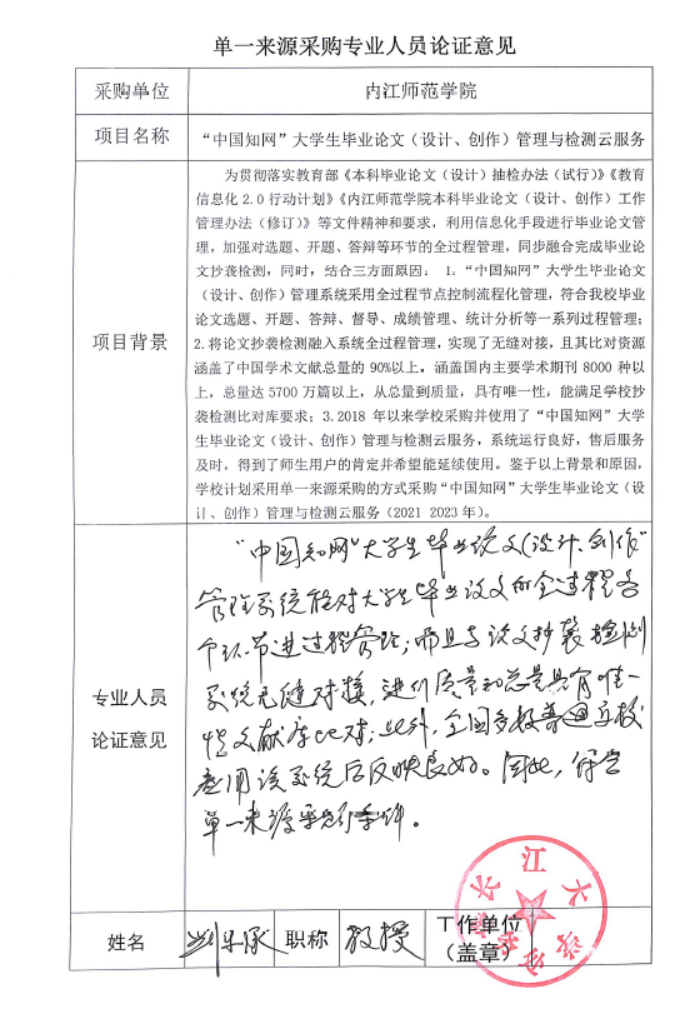 单一来源采购专业人员论证意见
采购单位 内江师范学院
项目名称 “中国知网”大学生毕业论文（设计、创作）管理与检测云服务
项目背景
为贯彻落实教育部《本科毕业论文（设计）抽检办法（试行）》《教育
信息化 2.0 行动计划》《内江师范学院本科毕业论文（设计、创作）工作
管理办法（修订）》等文件精神和要求，利用信息化手段进行毕业论文管
理，加强对选题、开题、答辩等环节的全过程管理，同步融合完成毕业论
文抄袭检测，同时，结合三方面原因： 1. “中国知网”大学生毕业论文
（设计、创作）管理系统采用全过程节点控制流程化管理，符合我校毕业
论文选题、开题、答辩、督导、成绩管理、统计分析等一系列过程管理；
2.将论文抄袭检测融入系统全过程管理，实现了无缝对接，且其比对资源
涵盖了中国学术文献总量的 90%以上，涵盖国内主要学术期刊 8000 种以
上，总量达 5700 万篇以上，从总量到质量，具有唯一性，能满足学校抄
袭检测比对库要求；3.2018 年以来学校采购并使用了“中国知网”大学
生毕业论文（设计、创作）管理与检测云服务，系统运行良好，售后服务
及时，得到了师生用户的肯定并希望能延续使用。鉴于以上背景和原因，
学校计划采用单一来源采购的方式采购“中国知网”大学生毕业论文（设
计、创作）管理与检测云服务（2021 2023 年）。
专业人员
论证意见
“中国知网”大学生毕业论文(设计、创作”
管理系统能对大学生毕业论文的全过程各
个环节进过程管理；而且与论文抄袭检测
系统无缝对接，进行质量和总量具有唯一
性文献库比对；此外，全国多数普通高校
应用该系统后反映良好。因此，符合
单一来源采购条件。
姓名 职称 教授 工作单位
（盖章）
长江大学